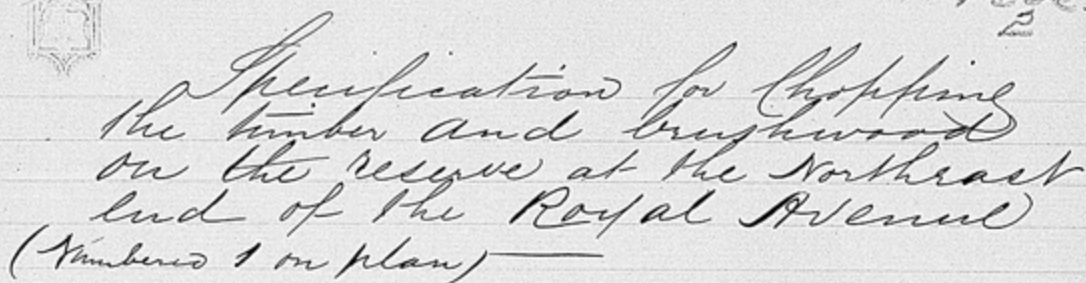 Specification for Chopping
the timber and brushwood
on the reserve at the Northeast
end of the Royal Avenue
(Numbered 1 on plan)